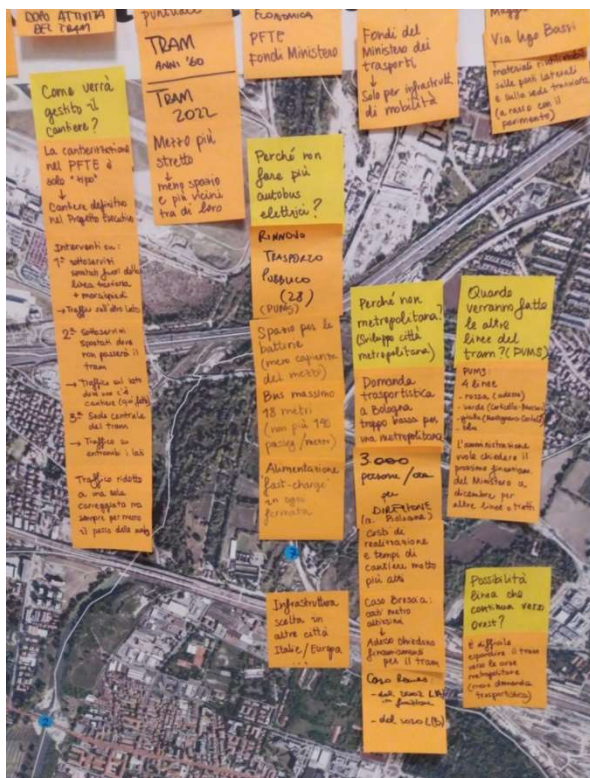 DOPO ATTIVITÀ
DEL TRAM
Come verrà
gestito il
cantiere?
La canterizzazione
nel PFTE è
solo "tipo"
↓
Cantiere definitivo
nel Progetto Esecutivo
Interventi su:
1° sottoservizi
spostati fuori dalla
linea tranviaria
+ marciapiedi
→ Traffico sull'altro lato
2° Sottoservizi
spostati dove
non passerà il
tram
→ Traffico sul lato
dove non c'è
cantiere (già fatto)
3° Sede centrale
del tram
→ Traffico su
entrambi i lati
Traffico ridotto
a una sola
carreggiata ma
sempre permesso
il passo delle auto
puntuale
TRAM
ANNI '60
TRAM
2022
Mezzo più
stretto
↓
meno spazio
e più vicini
tra di loro
ECONOMICA
PFTE
Fondi Ministero
Perché non
fare più
autobus
elettrici?
RINNOVO
TRASPORTO
PUBBLICO
(28)
(PUMS)
Spazio per le
batterie
(meno capienza
dei mezzi)
Bus massimo
18 metri
(non più 190
passeg/mezzo)
Alimentazione
"fast-charge"
in ogni
fermata
Infrastruttura
scelta in
altre città
Italie/Europa
...
Fondi del
Ministero dei
trasporti
↓
Solo per infrastrutt
di mobilità
Perché non
metropolitana?
(Sviluppo città
metropolitana)
Domanda
trasportistica
a Bologna
troppo bassa per
una metropolitana
3.000
persone/ora
per
DIREZIONE
(a Bologna)
Costi di
realizzazione
e tempi di
cantiere molto
più alti
Caso Brescia:
costi metro
altissimi
↓
Adesso chiedono
finanziamenti
per il tram
Caso Rennes
- dal 2002 L(A)
in funzione
- dal 2020 L(B)
Via Ugo Bassi
materiali
sulle parti laterali
e sulla sede tranviaria
(a raso con il
pavimento)
Quando
verranno fatte
le altre
linee del
tram? (PUMS)
PUMS:
4 linee
- rossa (adesso)
- verde
- gialla
- blu
L'amministrazione
vuole chiedere il
prossimo finanziam.
del Ministero a
dicembre per
altre linee o tratti
Possibilità
linea che
continua verso
Ovest?
È difficile
espandere il tram
verso le aree
metropolitane
(meno domanda
trasportistica)